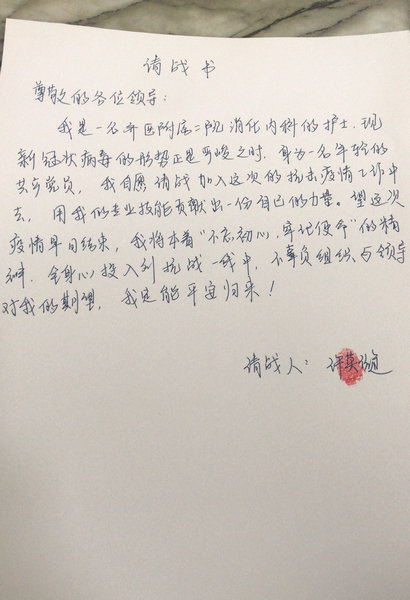 请战书
尊敬的各位领导：
我是一名弃医附属二院消化内科的护士，现
新冠状病毒的形势正是严峻之时，身为一名年轻的
共产党员，我自愿请战加入这次的抗击疫情工作中
去，用我的专业技能贡献出一份自己的力量。望这次
疫情早日结束，我将本着“不忘初心，牢记使命”的精
神，全身心投入到抗战一线中，不辜负组织与领导
对我的期望，我定能平安归来！
请战人：许英